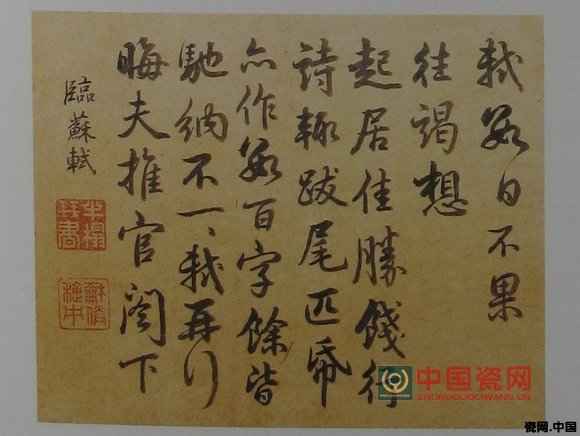 軾數日不果
往謁想
起居佳勝餞行
詩輒跋尾匹帋
亦作數百字餘皆
馳納不一、軾再拜
晦夫推官閣下
臨蘇軾
半榻琴書
中国瓷网
ZHONGGUOCIWANG.CN
瓷网.中国